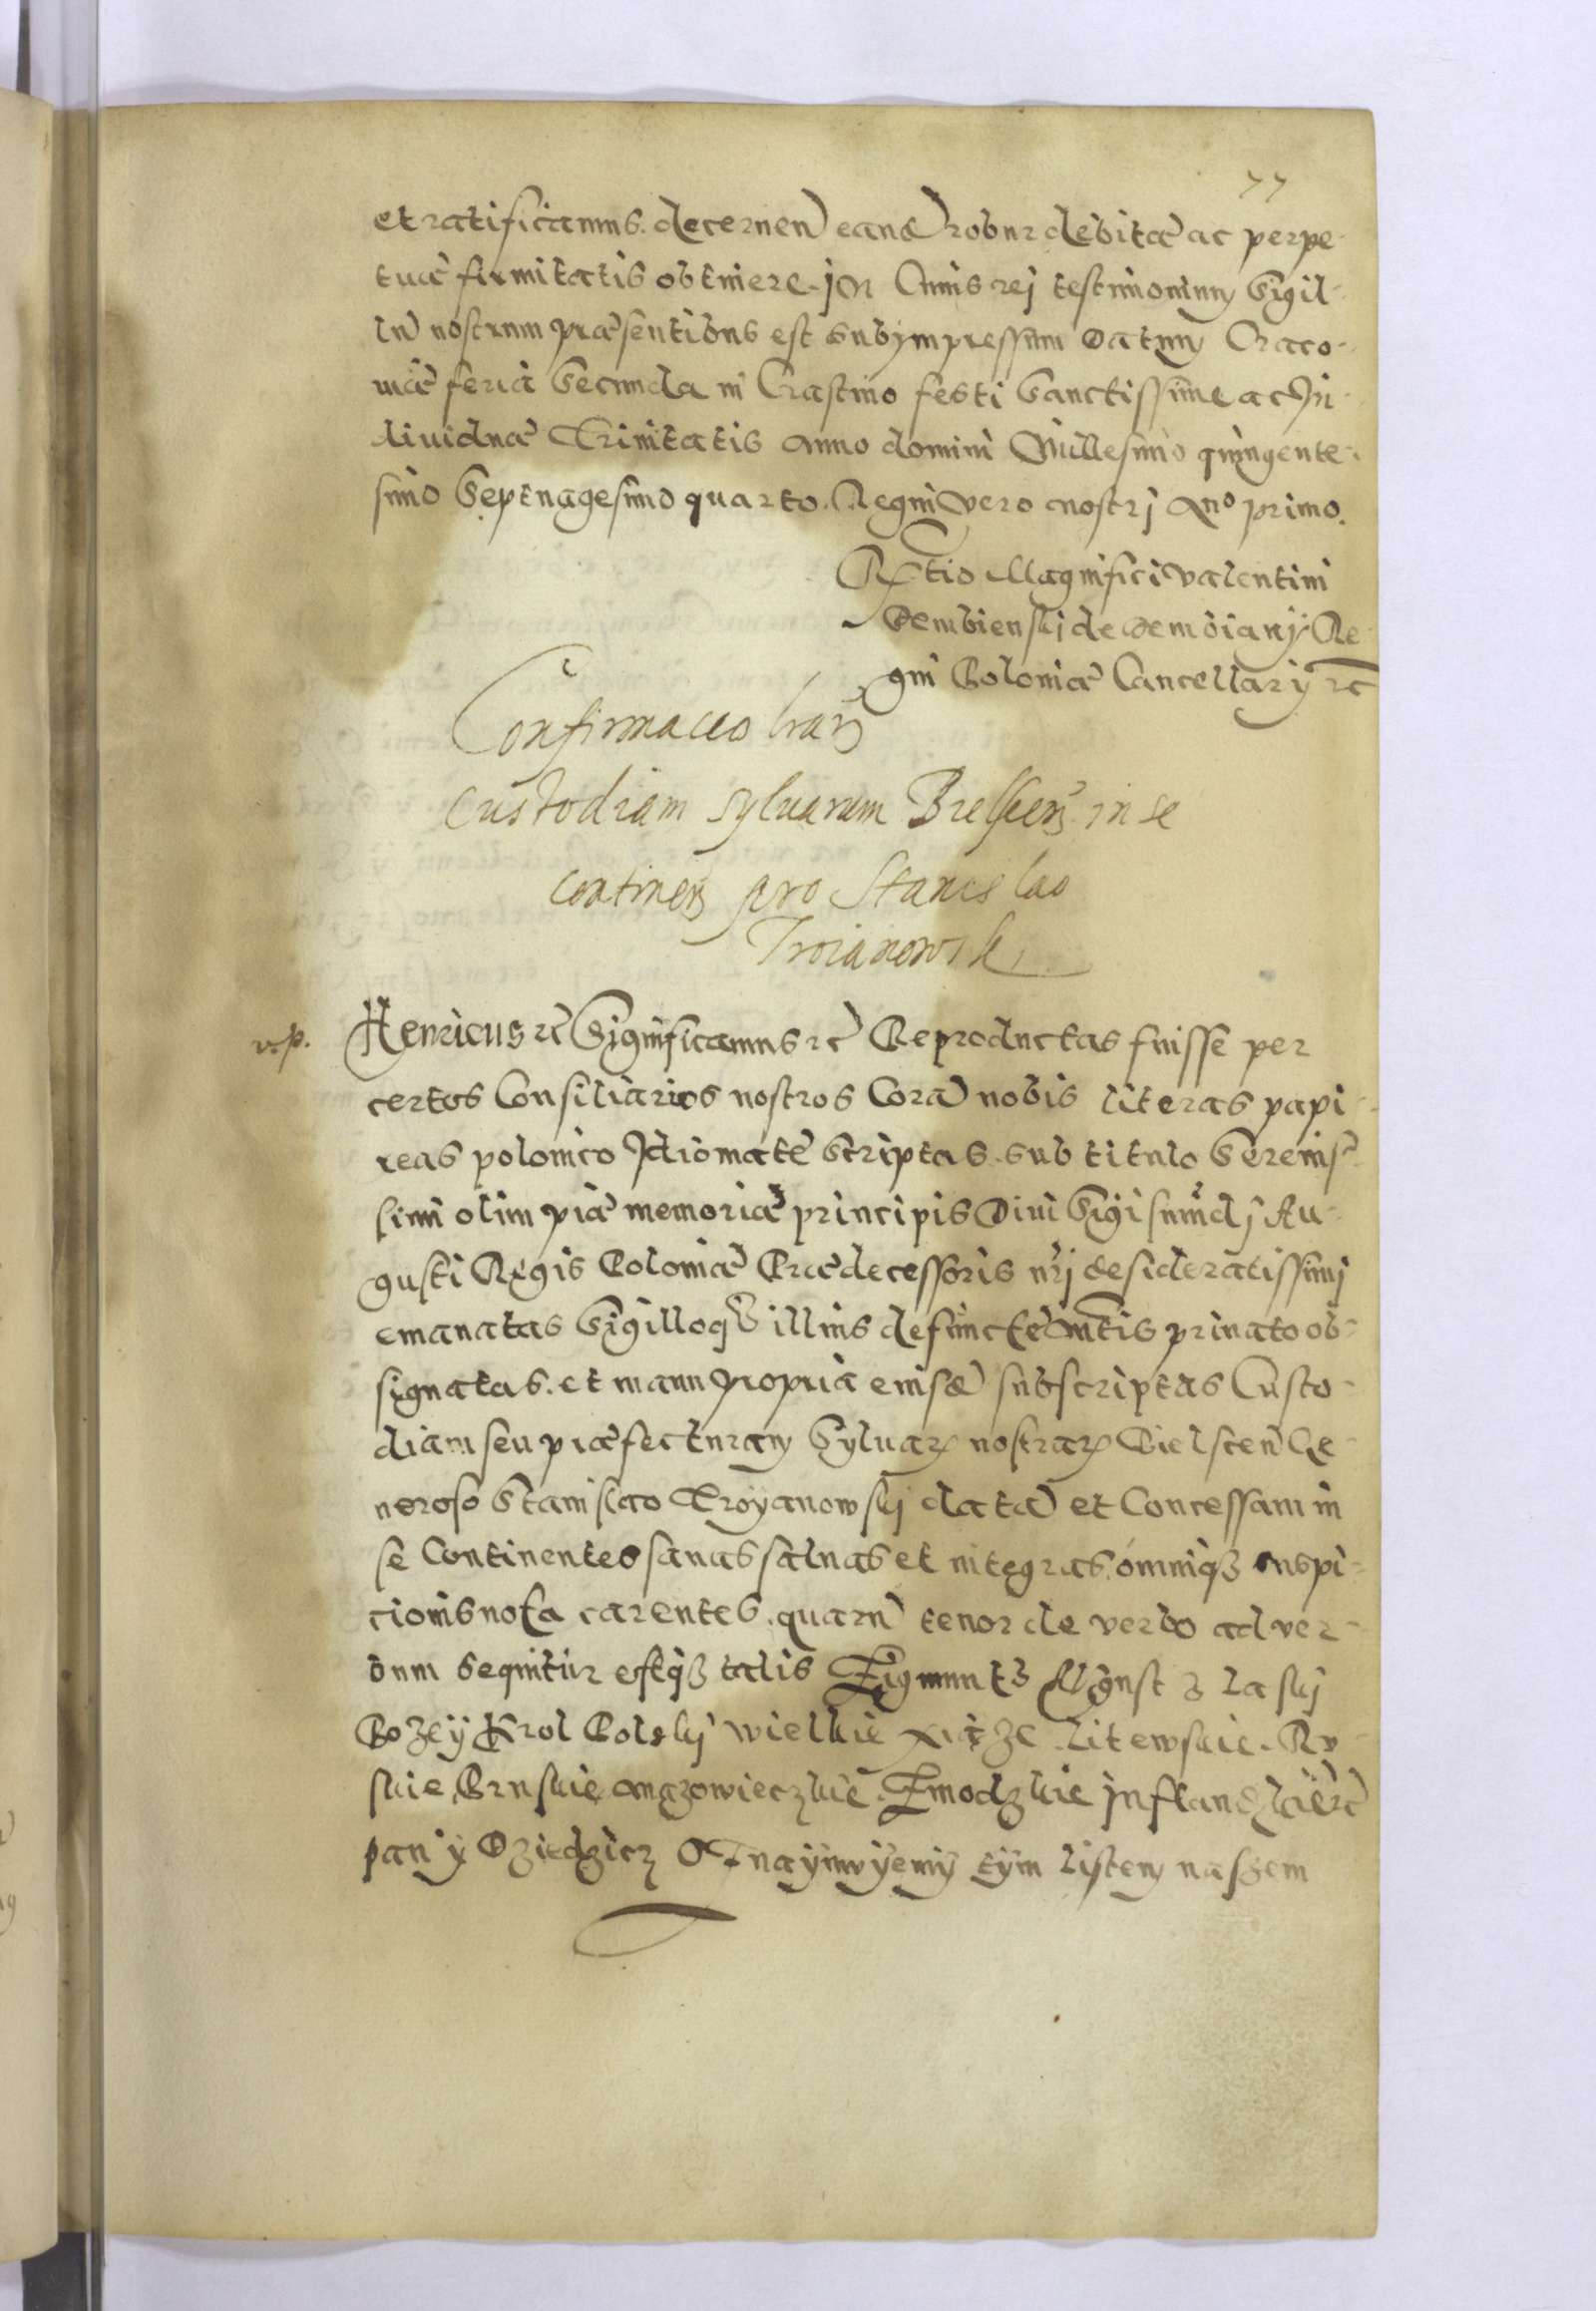 77
et ratificamus. decernen eand robur debitæ ac perpe-
tuæ firmitatis obtinere. jn Cuius rej testimonium Sigil-
lu nostrum præsentibus est subimpressum Datum Craco-
uiæ feria Secunda in Crastino festi Sanctissime ac In-
diuiduæ Trinitatis Anno domini Millesimo quingente-
simo Septuagesimo quarto. Regni vero nostrj Ano primo.
Rtio Magnifici Valentini
Dembienskj de Dembianÿ Re-
gni Poloniæ Cancellarÿ rc
Confirmacio lrarz
custodiam syluarum Bielscenz in se
continenz pro Stanislao
Troianowski
v.p.
Henricus rc Significamus rc Reproductas fuisse per
certos Consiliarios nostros Cora nobis literas papi-
reas polonico Idiomate Scriptas. sub titulo Serenis-
simi olim piæ memoriæ principis Diui Sigismudj Au-
gusti Regis Poloniæ Prædecessoris nrj desideratissimj
emanatas Sigilloq illius defuncte Mtis priuato ob-
signatas. et manu propria eiusd subscriptas Custo-
diam seu præfecturam Syluar nostrar Bielscen Ge-
neroso Stanislao Troyanowskj data et Concessam in
se Continentes sanas saluas et integras. omniqz suspi-
cionis nota carentes. quaru tenor de verbo ad ver-
bum sequitur estqz talis Zigmunth August z laskj
Bozeÿ Krol Polskj wielkie xiąze Litewskie. Ru-
skie, Pruskie, Mazowieczkie. Zmodzkie jnflandzkie rc
pan ÿ Dziedzicz Oznaÿmuÿemÿ tÿm listem naszem